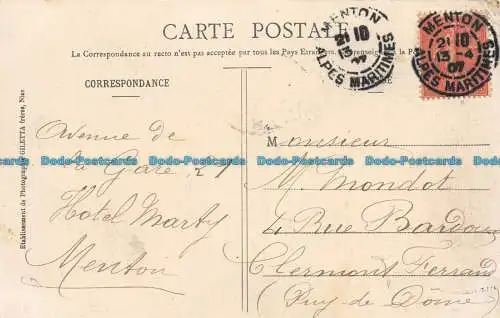 CARTE POSTALE
La Correspondance au recto n'est pas acceptée par tous les Pays Étrangers.
CORRESPONDANCE
MENTON
21 10
15 -4
07
ALPES MARITIMES
MENTON
21 10
15 -4
07
ALPES MARITIMES
Avenue de
la Gare 21
Hotel Marty
Menton
Monsieur
M. Mondot
4 Rue Bardoux
Clermont Ferrand
(Puy de Dôme)
Etablissement de Photographie GILETTA frères, Nice
Dodo-Postcards Dodo-Postcards Dodo-Postcards Dodo-Postcards Dodo-Postcards Dodo-Postcards